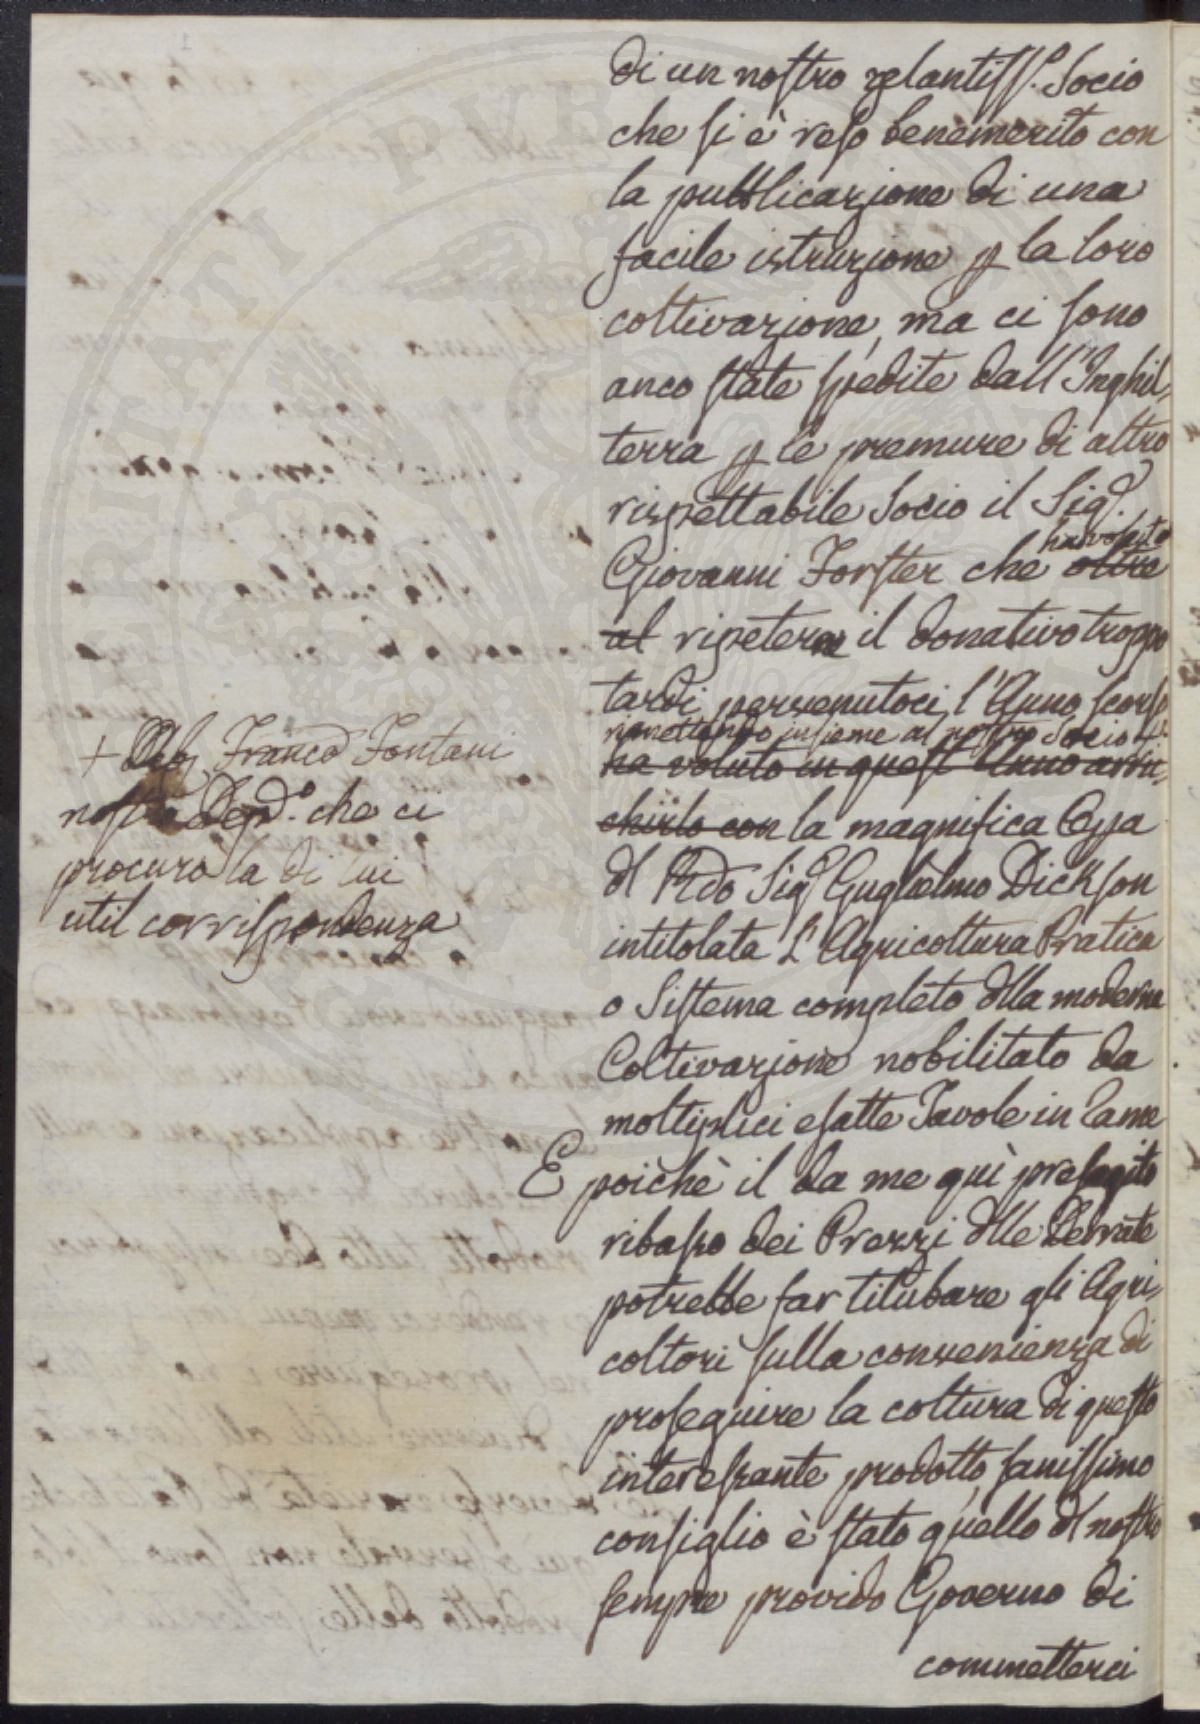 di un nostro zelantiss.º Socio
che si è reso benemerito con
la pubblicazione di una
facile istruzione p la loro
coltivazione, ma ci sono
anco state spedite dall'Inghil,
terra p le premure di altro
rispettabile Socio il Sigʳ.
ha voluto
Giovanni Forster che oltre
al ripetere il donativo troppo
tardi pervenutoci l'Anno scorso
rimettendo insieme al nostro Socio +
ha voluto in quest'Anno arric,
chirlo con la magnifica
dl Rdo Sigʳ Guglielmo Dickson
intitolata L'Agricoltura Pratica
o Sistema completo dlla moderna
Coltivazione nobilitato da
moltiplici esatte Tavole in rame
E poichè il da me quì presagito
ribasso dei Prezzi dlle Derrate
potrebbe far titubare gli Agri,
coltori sulla convenienza di
proseguire la coltura di questo
interessante prodotto, sanissimo
consiglio è stato quello dl nostro
sempre provido Governo di
commetterci
+ Francº Fontani
nostro che ci
procurò la di lui
util corrispondenza
PVB